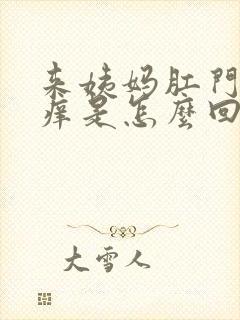 来姨妈肛門
痒是怎麼回
大雪人